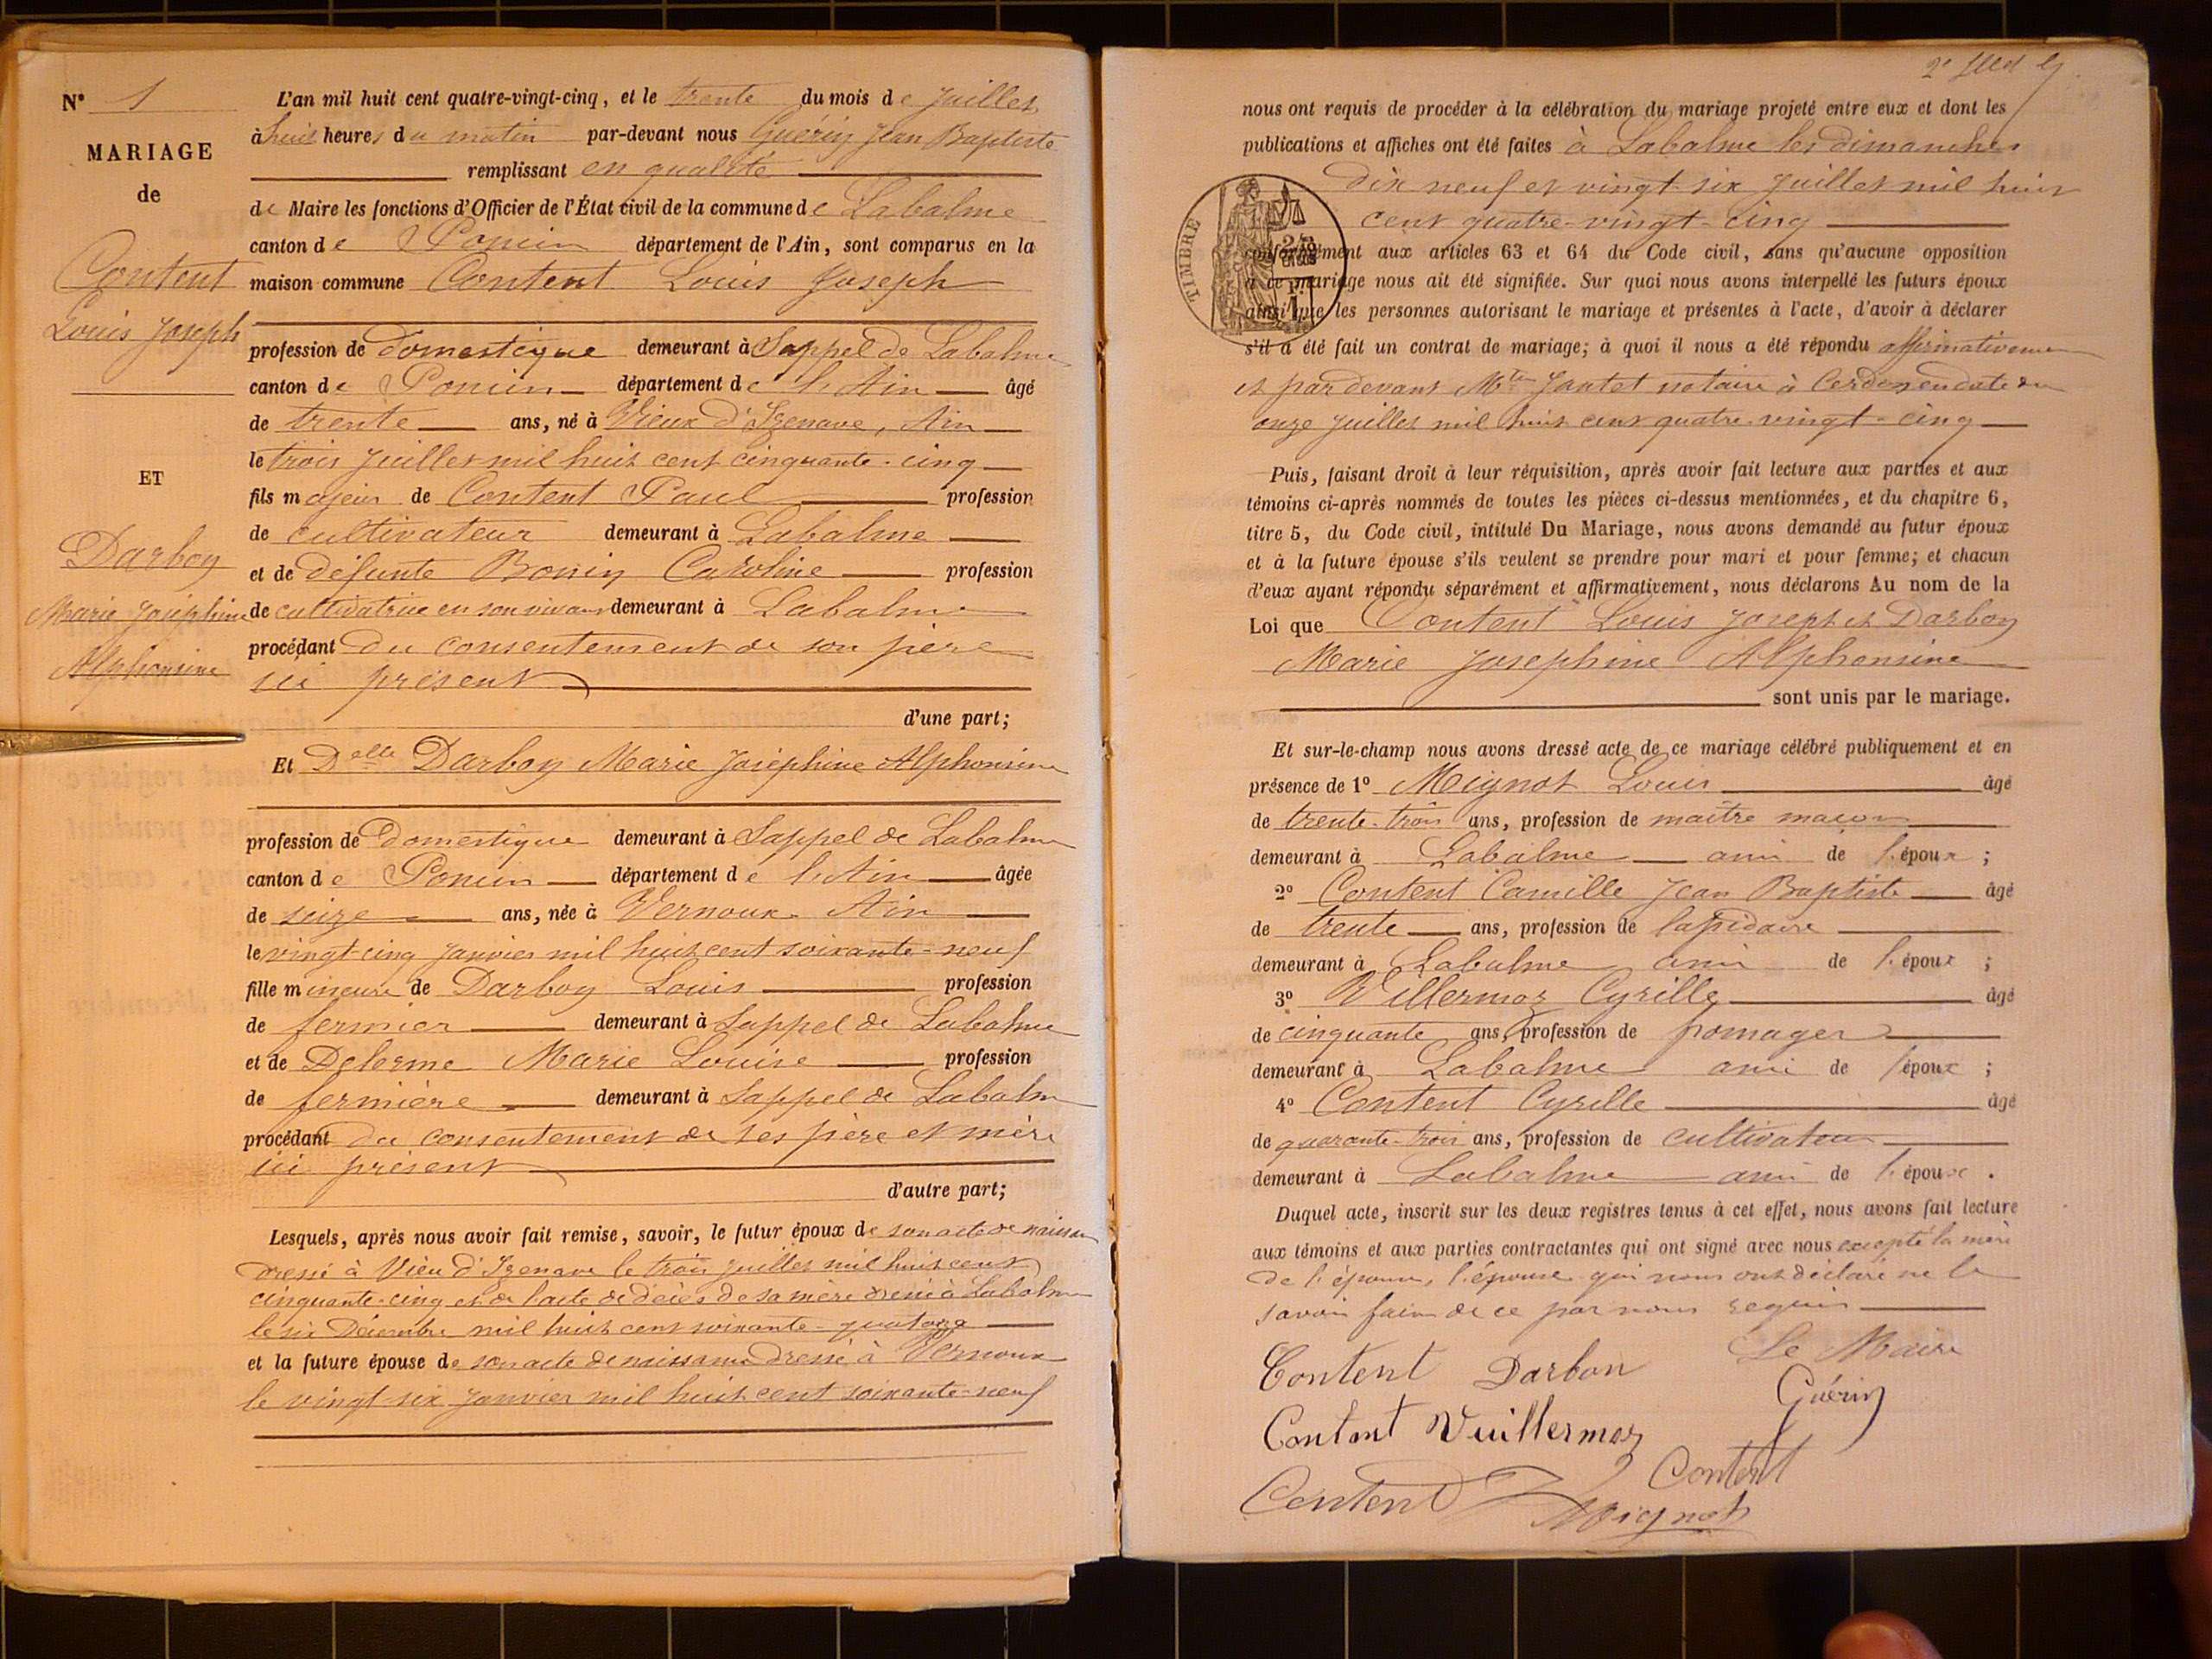 N° 1
MARIAGE
de
Content
Louis Joseph
ET
Darbon
Marie Joséphine
Alphonsine
L'an mil huit cent quatre-vingt-cinq, et le trente du mois de Juillet
à huit heures du matin par-devant nous Guérin Jean Baptiste
remplissant en qualité
de Maire les fonctions d'Officier de l'État civil de la commune de Labalme
canton de Poncin département de l'Ain, sont comparus en la
maison commune Content Louis Joseph
profession de domestique demeurant à Sappel de Labalme
canton de Poncin département de l'Ain âgé
de trente ans, né à Vieux d'Izenave, Ain
le trois Juillet mil huit cent cinquante-cinq
fils majeur de Content Paul profession
de cultivateur demeurant à Labalme
et de défunte Bonin Caroline profession
de cultivatrice en son vivant demeurant à Labalme
procédant du consentement de son père
ici présent
d'une part;
Et Delle Darbon Marie Joséphine Alphonsine
profession de domestique demeurant à Sappel de Labalme
canton de Poncin département de l'Ain âgée
de seize ans, née à Vernoux Ain
le vingt-cinq Janvier mil huit cent soixante-neuf
fille mineure de Darbon Louis profession
de fermier demeurant à Sappel de Labalme
et de Delorme Marie Louise profession
de fermière demeurant à Sappel de Labalme
procédant du consentement de ses père et mère
ici présent
d'autre part;
Lesquels, après nous avoir fait remise, savoir, le futur époux de son acte de naissance
dressé à Vieu d'Izenave le trois Juillet mil huit cent
cinquante-cinq et de l'acte de décès de sa mère dressé à Labalme
le six Décembre mil huit cent soixante-quatorze
et la future épouse de son acte de naissance dressé à Vernoux
le vingt-six Janvier mil huit cent soixante-neuf
nous ont requis de procéder à la célébration du mariage projeté entre eux et dont les
publications et affiches ont été faites à Labalme les dimanches
dix neuf et vingt-six Juillet mil huit
cent quatre-vingt-cinq
TIMBRE
conformément aux articles 63 et 64 du Code civil, sans qu'aucune opposition
à ce mariage nous ait été signifiée. Sur quoi nous avons interpellé les futurs époux
ainsi que les personnes autorisant le mariage et présentes à l'acte, d'avoir à déclarer
s'il a été fait un contrat de mariage; à quoi il nous a été répondu affirmativement
et par devant Mtre Jantet notaire à Cerdon en date du
onze Juillet mil huit cent quatre-vingt-cinq
Puis, faisant droit à leur réquisition, après avoir fait lecture aux parties et aux
témoins ci-après nommés de toutes les pièces ci-dessus mentionnées, et du chapitre 6,
titre 5, du Code civil, intitulé Du Mariage, nous avons demandé au futur époux
et à la future épouse s'ils veulent se prendre pour mari et pour femme; et chacun
d'eux ayant répondu séparément et affirmativement, nous déclarons Au nom de la
Loi que Content Louis Joseph et Darbon
Marie Josephine Alphonsine
sont unis par le mariage.
Et sur-le-champ nous avons dressé acte de ce mariage célébré publiquement et en
présence de 1° Mignot Louis âgé
de trente-trois ans, profession de maître maçon
demeurant à Labalme ami de l'époux ;
2° Content Camille Jean Baptiste âgé
de trente ans, profession de lapidaire
demeurant à Labalme ami de l'époux ;
3° Villermoz Cyrille âgé
de cinquante ans, profession de fromager
demeurant à Labalme ami de l'époux ;
4° Content Cyrille âgé
de quarante-trois ans, profession de cultivateur
demeurant à Labalme ami de l'épouse .
Duquel acte, inscrit sur les deux registres tenus à cet effet, nous avons fait lecture
aux témoins et aux parties contractantes qui ont signé avec nous excepté la mère
de l'épouse, l'épouse qui nous ont déclaré ne le
savoir faire de ce par nous requis
Le Maire
Content Darbon
Guérin
Content Vuillermoz
Content
Content Mignot